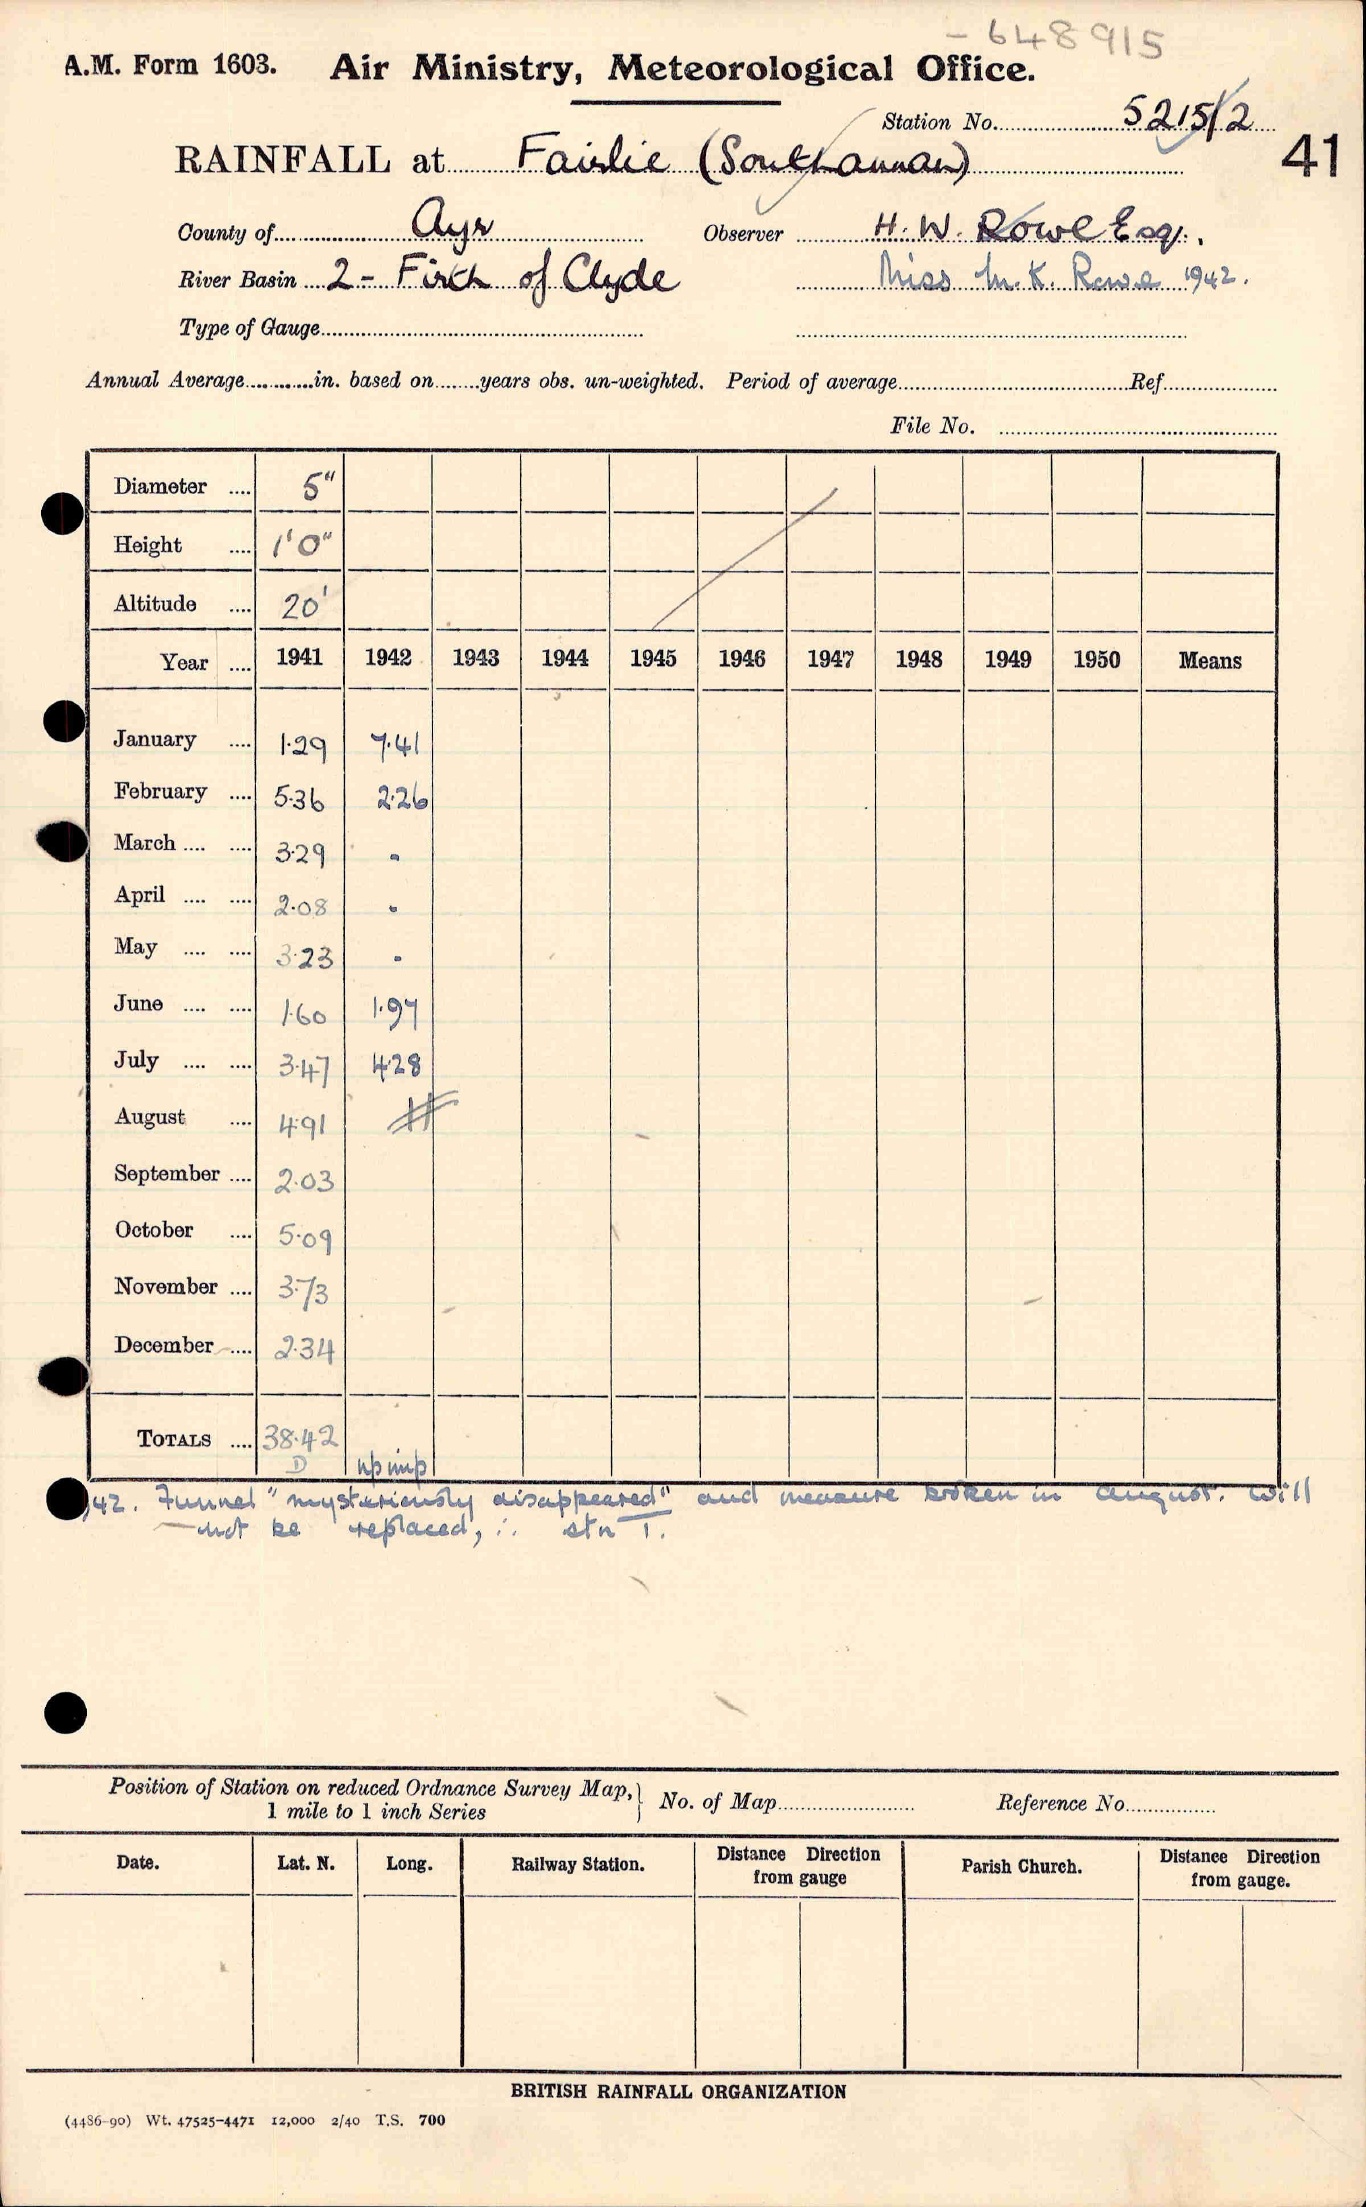 - 648915
A.M. Form 1603. Air Ministry, Meteorological Office.
Station No. 5215/2
41
RAINFALL at Fairlie (Southannan)
County of Ayr Observer H. W. Rowe Esq.
River Basin 2 - Firth of Clyde Miss M. K. Rowe 1942.
Type of Gauge
Annual Average in. based on years obs. un-weighted. Period of average Ref
File No.
Diameter .... 5"
Height .... 1'0"
Altitude .... 20'
Year .... 1941 1942 1943 1944 1945 1946 1947 1948 1949 1950 Means
January .... 1.29 7.41
February .... 5.36 2.26
March .... .... 3.29 -
April .... .... 2.08 -
May .... .... 3.23 -
June .... .... 1.60 1.97
July .... .... 3.47 4.28
August .... 4.91
September .... 2.03
October .... 5.09
November .... 3.73
December .... 2.34
TOTALS .... 38.42
D np imp
42. Funnel "mysteriously disappeared" and measure broken in August. Will
not be replaced, ∴ stn T.
Position of Station on reduced Ordnance Survey Map, No. of Map Reference No.
1 mile to 1 inch Series
Date. Lat. N. Long. Railway Station. Distance Direction from gauge Parish Church. Distance Direction from gauge.
BRITISH RAINFALL ORGANIZATION
(4486-90) Wt. 47525-4471 12,000 2/40 T.S. 700